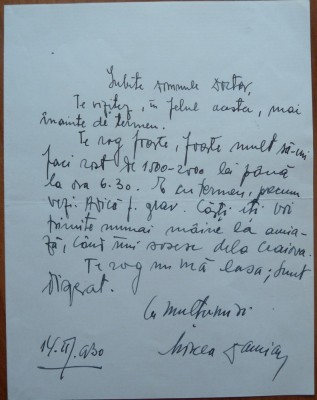 Iubite Domnule Doctor,
Te vizitez, în felul acesta, mai
înainte de termen.
Te rog foarte, foarte mult să-mi
faci rost de 1500-2000 lei până
la ora 6.30. E cu termen, precum
vezi. Adică f. grav. Cărți iți voi
trimite numai mâine la amia-
ză, când îmi sosesc dela Craiova.
Te rog nu mă lasa; sunt
disperat.
Cu mulțumiri
Mircea Damian
14.II.930